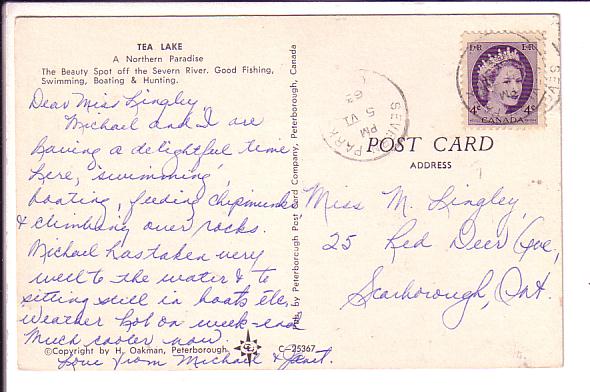 TEA LAKE
A Northern Paradise
The Beauty Spot off the Severn River. Good Fishing,
Swimming, Boating & Hunting.
Dear Miss Lingley,
Michael and I are
having a delightful time
here, swimming,
boating, feeding chipmunks
& climbing over rocks.
Michael has taken very
well to the water & to
sitting still in boats etc.
Weather hot on week-end
much cooler now.
Love from Michael & Janet.
©Copyright by H. Oakman, Peterborough.
C-25367
by Peterborough Post Card Company, Peterborough, Canada
SEVE
PARK
PM
5 VI
63
EIIR EIIR
4c 4c
CANADA
POST CARD
ADDRESS
Miss M. Lingley,
25 Red Deer Ave,
Scarborough, Ont.